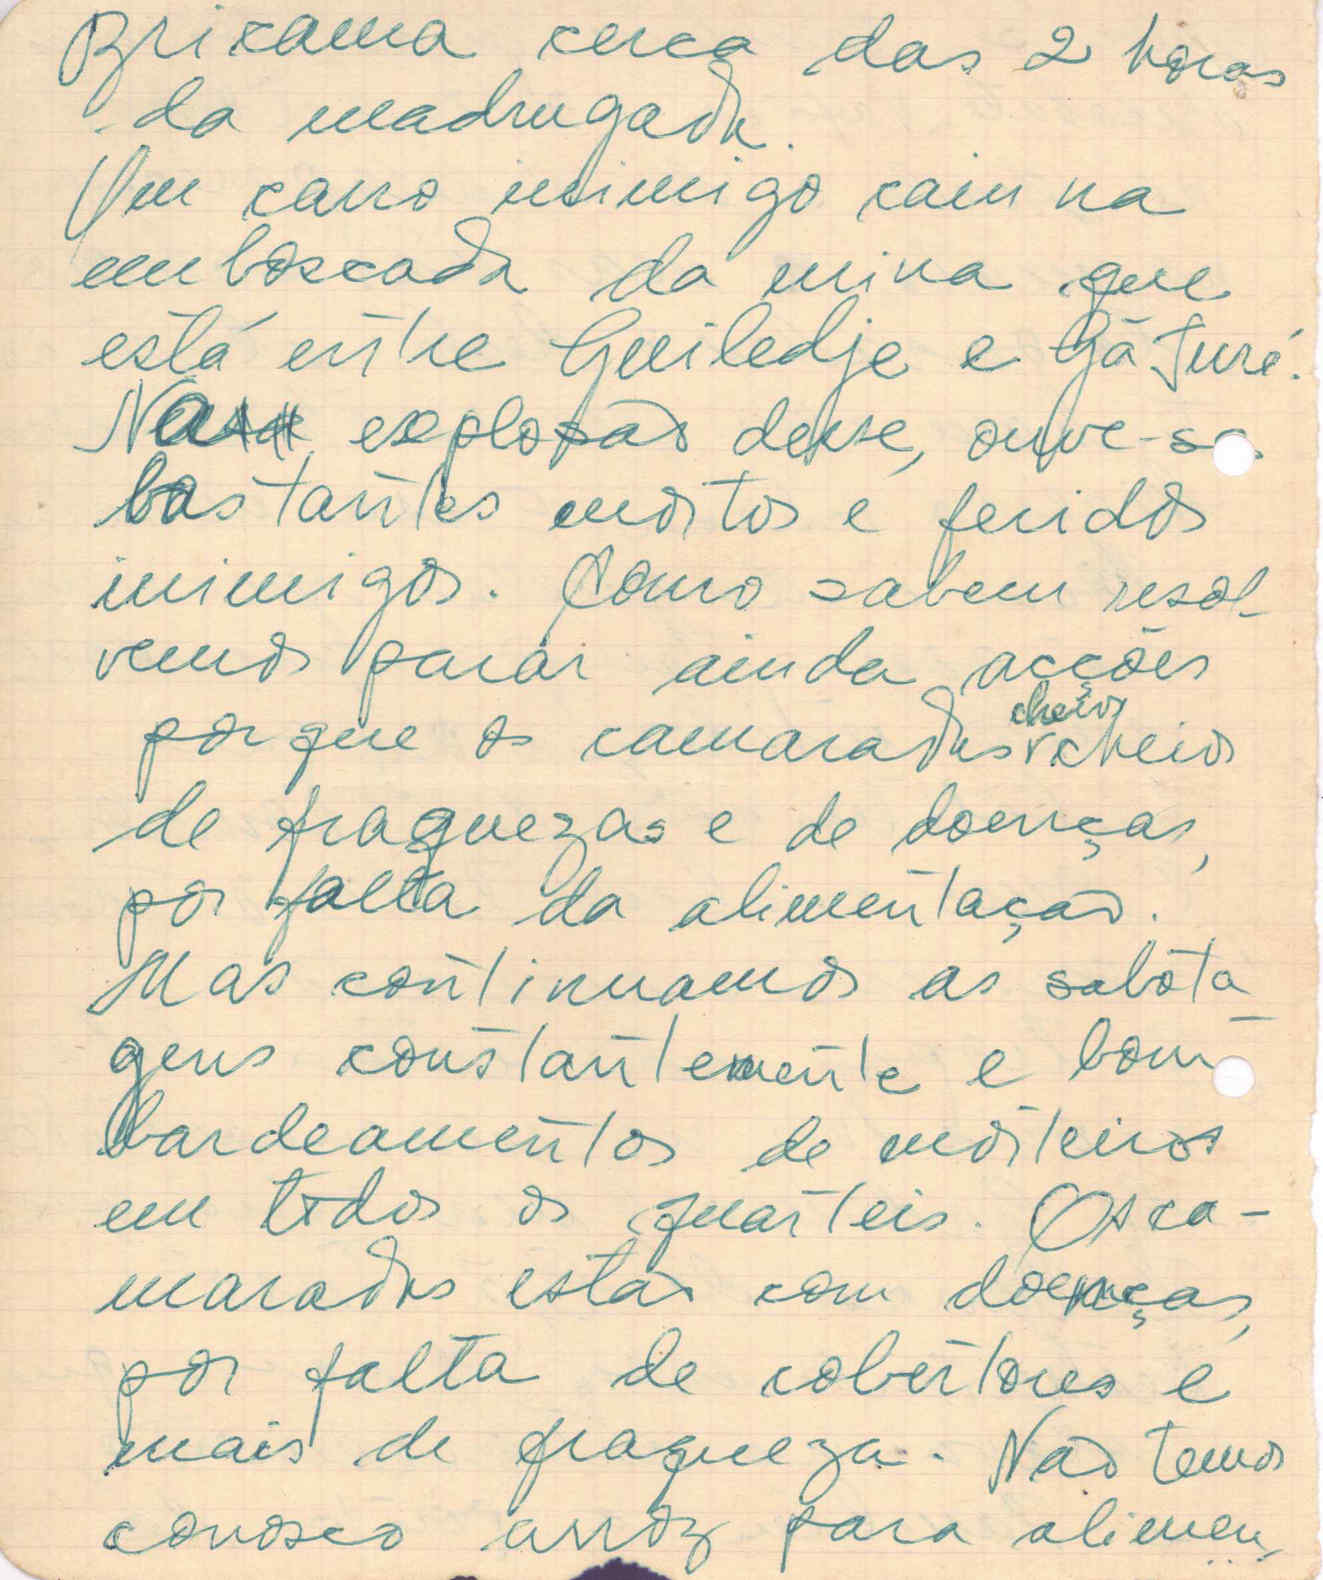 Brixama cerca das 2 horas
da madrugada.
Um carro inimigo caiu na
emboscada da mina que
está entre Guiledje e Gã Turé.
Na explosão desse, ouve-se
bastantes mortos e feridos
inimigos. Como sabem resol-
vemos parar ainda acções
porque os camaradas cheios cheios
de fraquezas e de doenças,
por falta da alimentação.
Mas continuamos as sabota
gens constantemente e bom-
bardeamentos de morteiros
em todos os quarteis. Os ca-
maradas estão com doenças,
por falta de cobertores e
mais de fraqueza. Não temos
conosco arroz para alimen